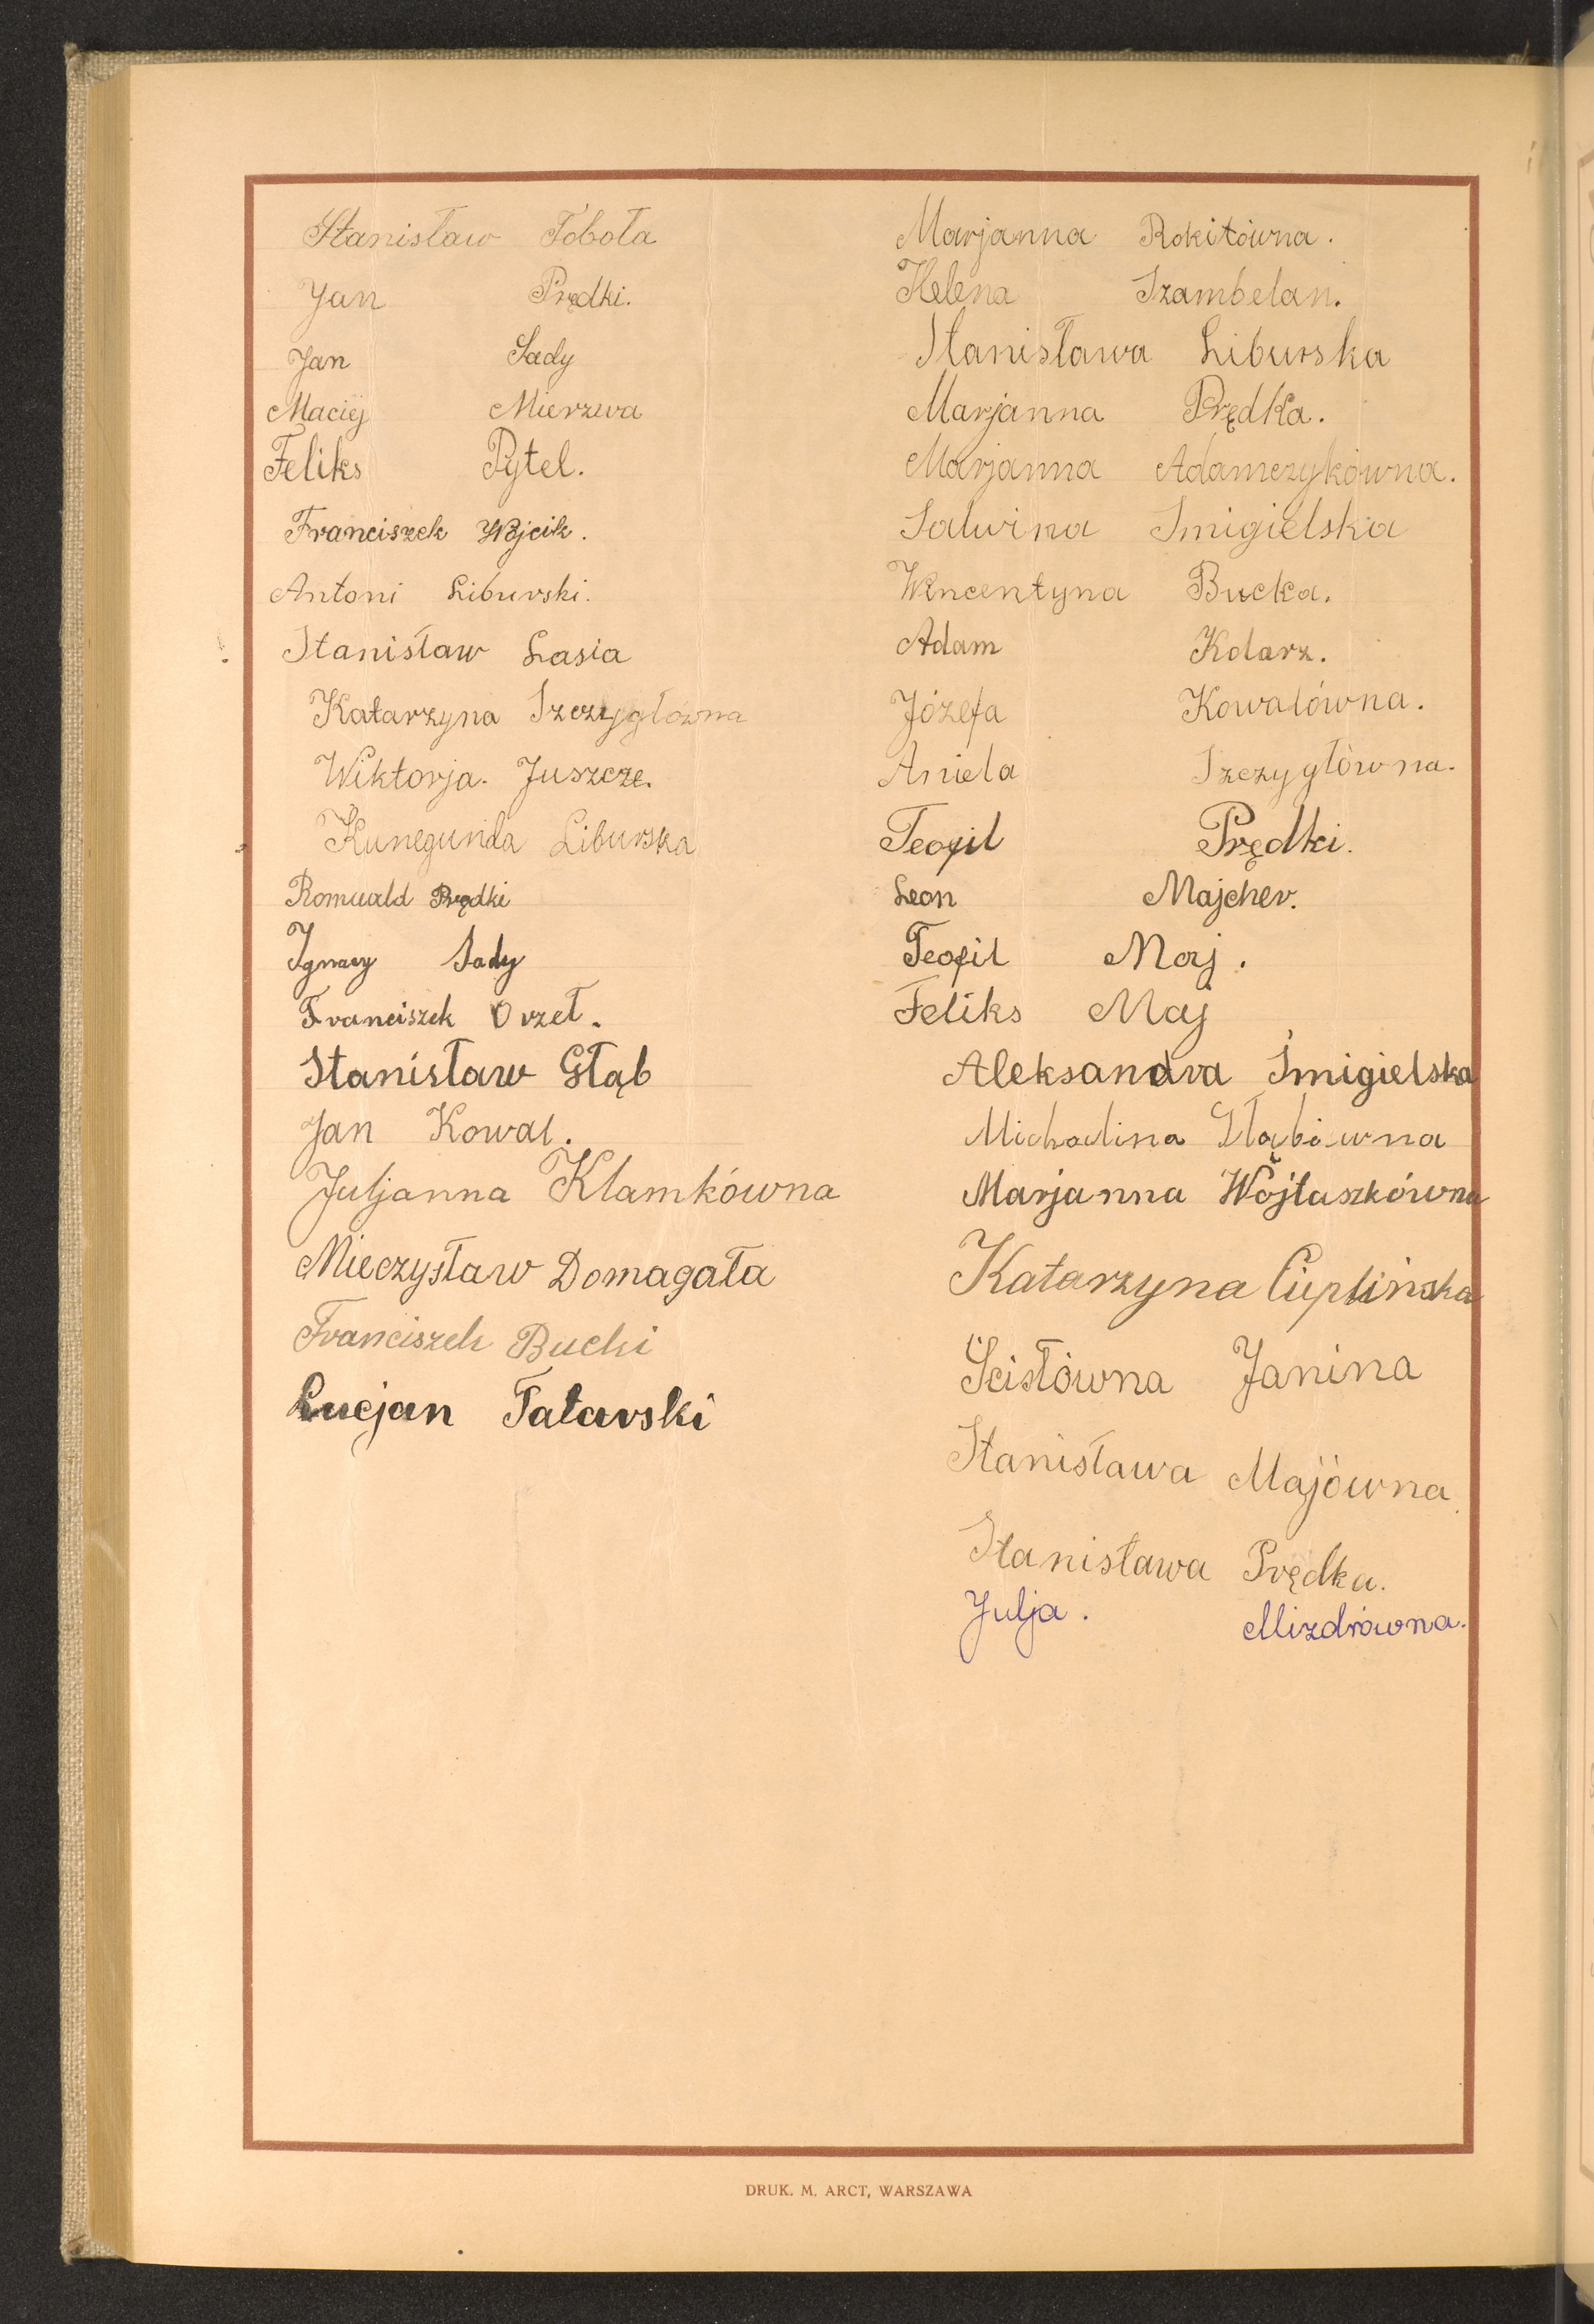 Stanisław Toboła
Jan Prędki.
Jan Sady
Maciej Mierzwa
Feliks Pytel.
Franciszek Wójcik.
Antoni Liburski.
Stanisław Łasia
Katarzyna Szczygłówna
Wiktorja. Juszcze.
Kunegunda Liburska
Romuald Prędki
Ignacy Sady
Franciszek Orzeł.
Stanisław Głąb
Jan Kowal.
Juljanna Klamkówna
Mieczysław Domagała
Franciszek Bucki
Lucjan Tatarski
Marjanna Rokitówna.
Helena Szambelan.
Stanisława Liburska
Marjanna Prędka.
Marjanna Adamczykówna.
Salwina Smigielska
Wincentyna Bucka.
Adam Kolarz.
Józefa Kowalówna.
Aniela Szczygłówna.
Teofil Prędki.
Leon Majcher.
Teofil Maj.
Feliks Maj
Aleksandra Śmigielska
Michalina Głąbówna
Marjanna Wójtaszkówna
Katarzyna Cieplińska
Ścisłówna Janina
Stanisława Majówna
Stanisława Prędka.
Julja. Mizdrówna.
DRUK. M. ARCT, WARSZAWA